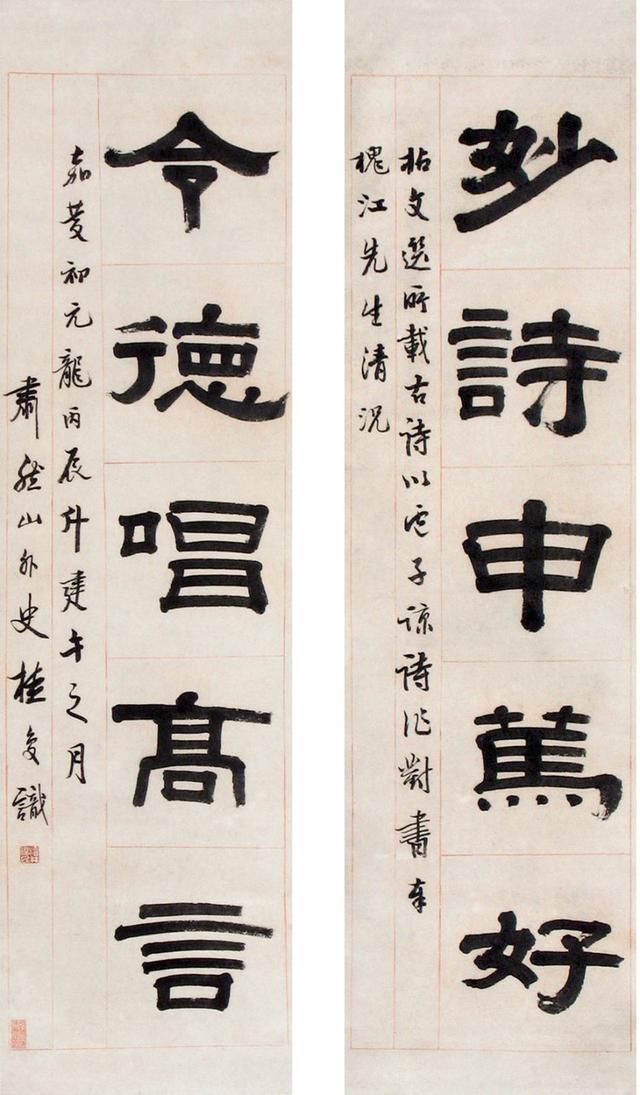 妙詩申篤好
拈文選所載古詩以盧子諒詩作對書奉
槐江先生清況
令德唱髙言
嘉慶初元龍丙辰斗建午之月
肅然山外史桂复識